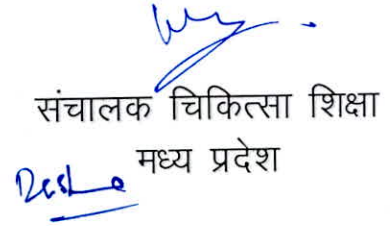 संचालक चिकित्सा शिक्षा
मध्य प्रदेश